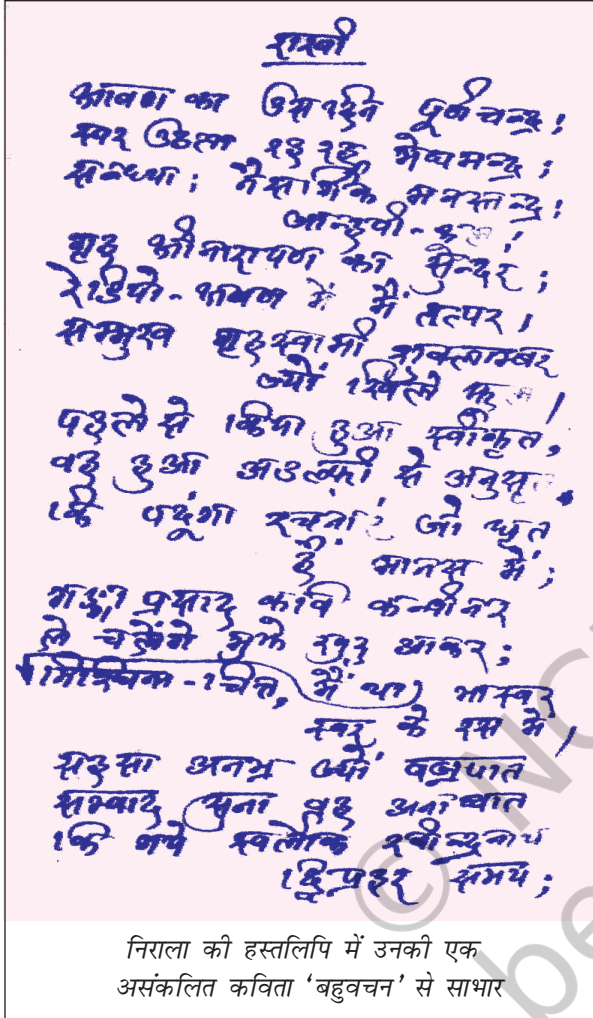 राखी
श्रावण का उस दिन पूर्णचन्द्र;
स्वर उठता रह रह मेघमन्द्र;
सन्ध्या; नैसर्गिक मनस्तन्द्र;
जान्हवी-
गृह श्रीनारायण का सुन्दर;
रेडियो-श्रवण में मैं तत्पर।
सम्मुख गृहस्वामी
ज्यों खिले
पहले से किया हुआ स्वीकृत,
वह हुआ अडल्फी से अनुसृत
कि पढूंगा रचनाएं जो धृत
हैं मानस में;
गङ्गाप्रसाद कवि कन्वीनर
ले चलेंगे मुझे खुद आकर;
निश्चिन्त-चित्त, मैं था भास्वर
स्वर के रस में।
सहसा अनभ्र ज्यों वज्रपात
सम्वाद सुना वह
कि गये स्वर्लोक रवीन्द्रनाथ
द्विप्रहर समय;
निराला की हस्तलिपि में उनकी एक
असंकलित कविता ‘बहुवचन’ से साभार
© NC
be